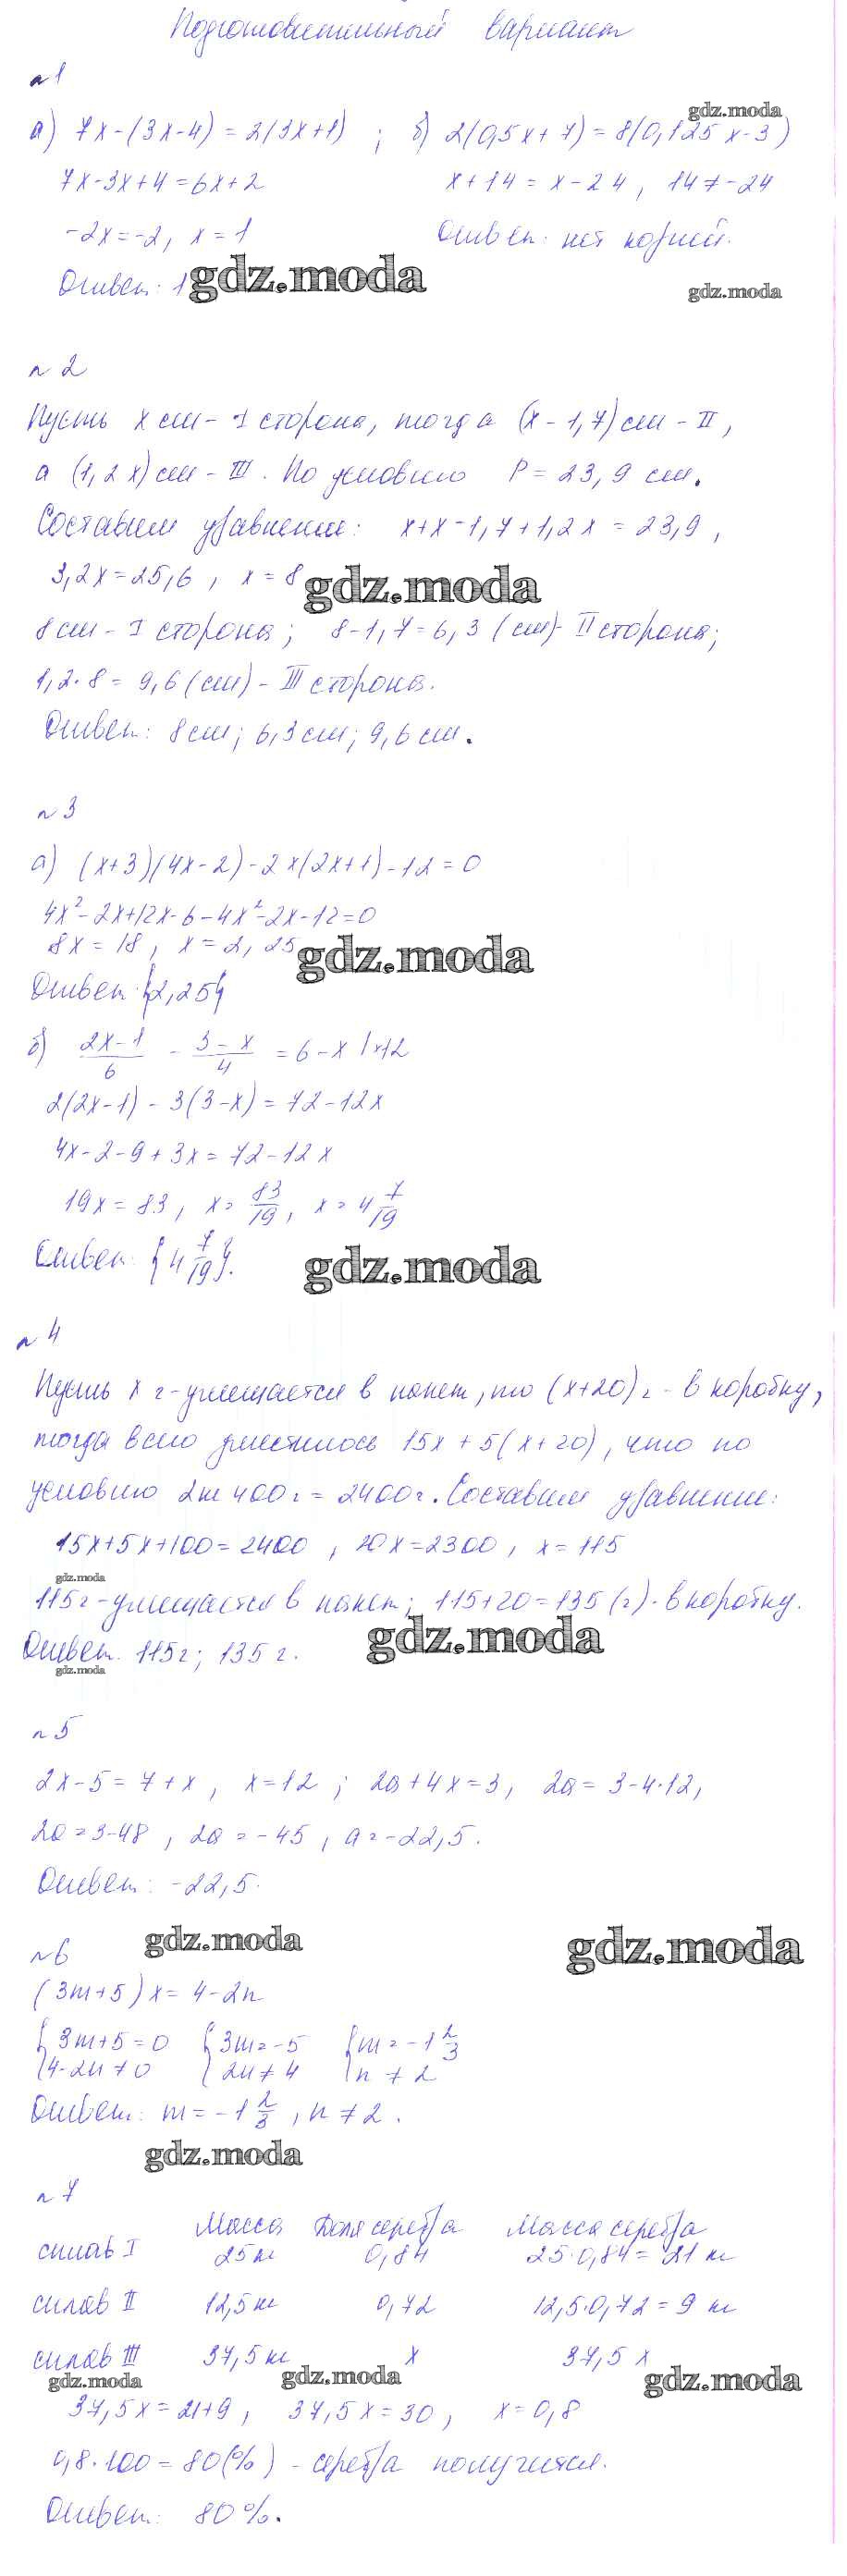 Подготовительный вариант
№1
а) 7x-(3x-4)=2(3x+1) ; б) 2(0,5x+7)=8(0,125x-3)
gdz.moda
7x-3x+4=6x+2 x+14=x-24, 14≠-24
-2x=-2, x=1 Ответ: нет корней.
Ответ: 1 gdz.moda
gdz.moda
№2
Пусть x см - I сторона, тогда (x-1,7) см - II,
а (1,2x) см - III. По условию P=23,9 см.
Составим уравнение: x+x-1,7+1,2x=23,9,
3,2x=25,6, x=8 gdz.moda
8 см - I сторона; 8-1,7=6,3 (см)- II сторона;
1,2·8=9,6(см)- III сторона.
Ответ: 8 см; 6,3 см; 9,6 см.
№3
а) (x+3)(4x-2)-2x(2x+1)-12=0
4x²-2x+12x-6-4x²-2x-12=0
8x=18, x=2,25
gdz.moda
Ответ: {2,25}
б) \frac{2x-1}{6} - \frac{3-x}{4} = 6-x |×12
2(2x-1)-3(3-x)=72-12x
4x-2-9+3x=72-12x
19x=83, x=\frac{83}{19}, x=4\frac{7}{19}
Ответ: {4\frac{7}{19}}. gdz.moda
№4
Пусть x г-умещается в пакет, то (x+20) г - в коробку,
тогда всего уместилось 15x+5(x+20), что по
условию 2 кг 400 г=2400 г. Составим уравнение:
15x+5x+100=2400, 20x=2300, x=115
gdz.moda
115 г-умещается в пакет; 115+20=135 (г)-в коробку.
Ответ: 115 г; 135 г. gdz.moda
gdz.moda
№5
2x-5=7+x, x=12; 2a+4x=3, 2a=3-4·12,
2a=3-48, 2a=-45, a=-22,5.
Ответ: -22,5.
№6 gdz.moda gdz.moda
(3m+5)x=4-2n
{3m+5=0 {3m=-5 {m=-1\frac{2}{3}
{4-2n≠0 {2n≠4 {n≠2
Ответ: m=-1\frac{2}{3}, n≠2.
gdz.moda
№7
Масса Доля серебра Масса серебра
сплав I 25 кг 0,84 25·0,84=21 кг
сплав II 12,5 кг 0,72 12,5·0,72=9 кг
сплав III 37,5 кг x 37,5x
gdz.moda gdz.moda gdz.moda
37,5x=21+9, 37,5x=30, x=0,8
0,8·100=80(%) - серебра получится.
Ответ: 80%.